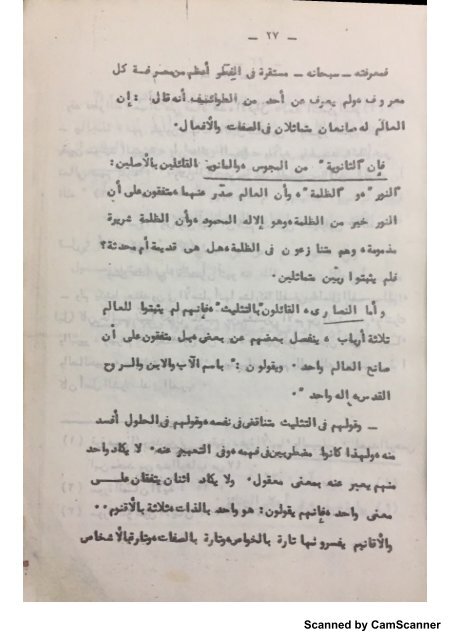 — ٢٧ —
فمعرفته — سبحانه — مستقرة في الفطر أعظم من معرفة كل
معروف ، ولم يعرف عن أحد من الطوائف أنه قال : إن
العالم له صانعان متماثلان في الصفات والأفعال .
فإن "الثانوية" من المجوس ، والمانوية القائلين بالأصلين :
"النور" و "الظلمة" ، وأن العالم صدر عنهما ، متفقون على أن
النور خير من الظلمة ، وهو الإله المحمود ، وأن الظلمة شريرة
مذمومة ، وهم متنازعون في الظلمة ، هل هي قديمة أم محدثة ؟
فلم يثبتوا ربين متماثلين .
وأما النصارى ، القائلون "بالتثليث" ، فإنهم لم يثبتوا للعالم
ثلاثة أرباب ، ينفصل بعضهم عن بعض ، بل متفقون على أن
صانع العالم واحد . ويقولون : " باسم الآب والابن والروح
القدس ، إله واحد " .
— وقولهم في التثليث متناقض في نفسه ، وقولهم في الحلول أفسد
منه ، ولهذا كانوا مضطربين في فهمه ، وفي التعبير عنه . لا يكاد واحد
منهم يعبر عنه بمعنى معقول . ولا يكاد اثنان يتفقان على
معنى واحد ، فإنهم يقولون : هو واحد بالذات ، ثلاثة بالأقنوم ..
والأقانيم يفسرونها تارة بالخواص ، وتارة بالصفات ، وتارة بالأشخاص
Scanned by CamScanner